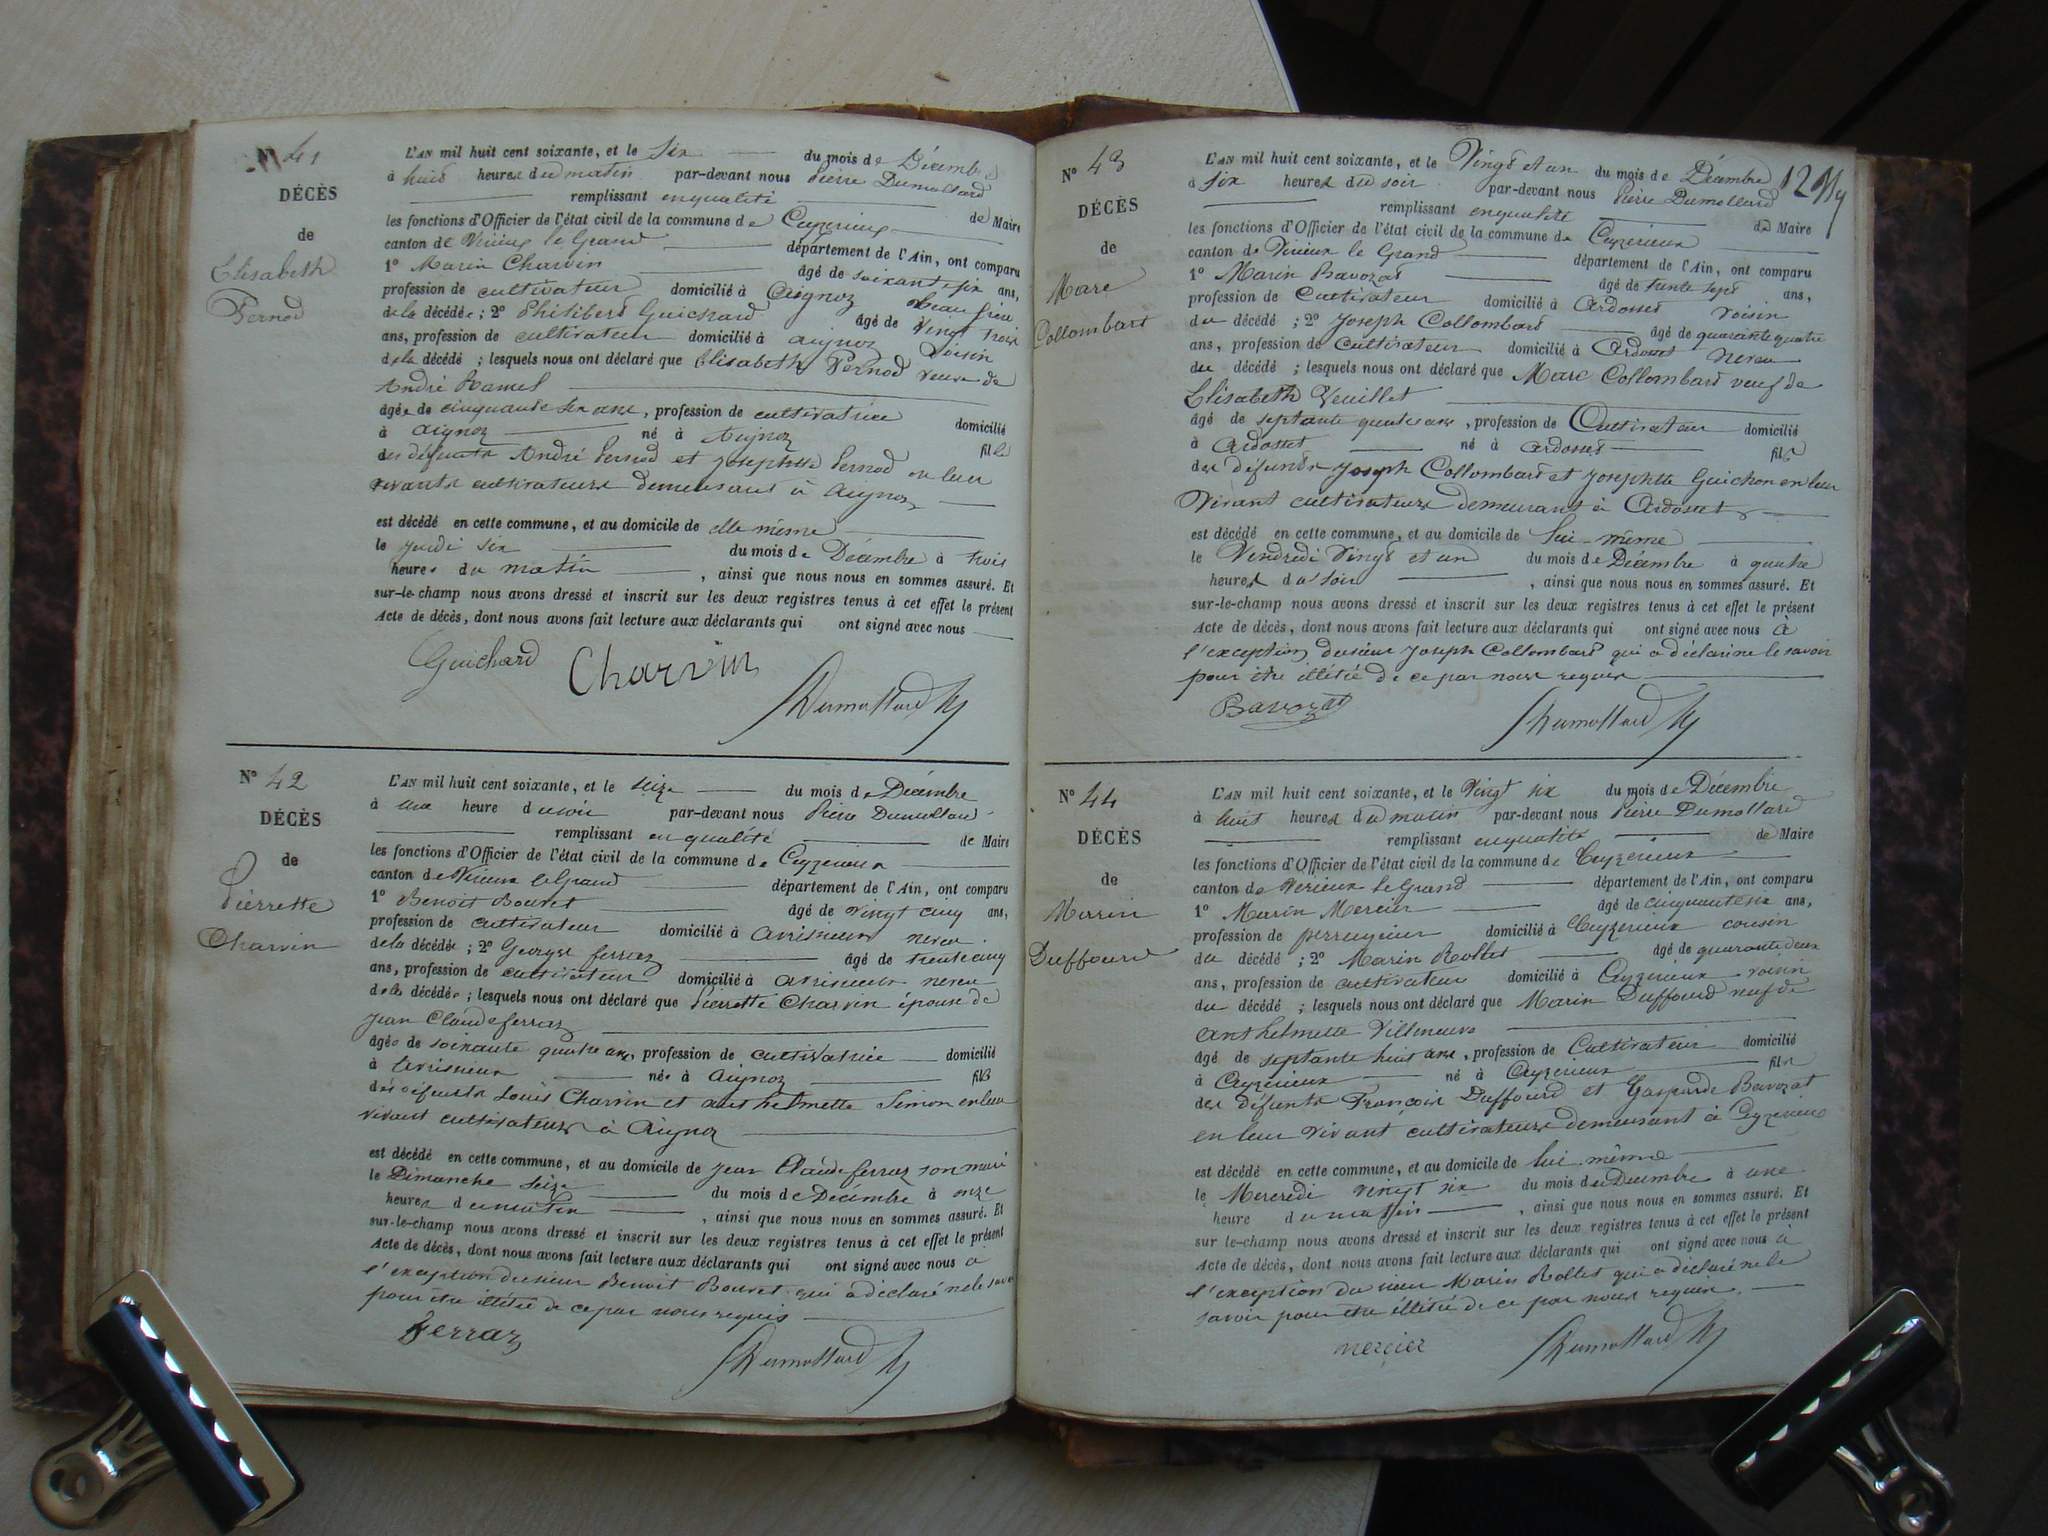 N° 41
DÉCÈS
de
Elisabeth
Pernod
L'AN mil huit cent soixante, et le Six du mois de Décembre
à huit heures du matin par-devant nous Pierre Dumollard
remplissant en qualité de Maire
les fonctions d'Officier de l'état civil de la commune de Ceyzerieux
canton de Virieux le Grand département de l'Ain, ont comparu
1° Marin Charvin âgé de soixante six ans,
profession de cultivateur domicilié à Aignoz beau frère
de la décédée; 2° Philibert Guichard âgé de vingt trois
ans, profession de cultivateur domicilié à aignoz voisin
de la décédé ; lesquels nous ont déclaré que Elisabeth Pernod veuve de
André Hamel
âgée de cinquante six ans, profession de cultivatrice domicilié
à aignoz né à Aignoz fille
des défunts André Pernod et Josephte Pernod en leur
vivants cultivateurs demeurant à Aignoz
est décédé en cette commune, et au domicile de elle même
le jeudi six du mois de Décembre à trois
heures du matin , ainsi que nous nous en sommes assuré. Et
sur-le-champ nous avons dressé et inscrit sur les deux registres tenus à cet effet le présent
Acte de décès, dont nous avons fait lecture aux déclarants qui ont signé avec nous
Guichard Charvin
Dumollard
N° 42
DÉCÈS
de
Pierrette
Charvin
L'AN mil huit cent soixante, et le seize du mois de Décembre
à une heure du soir par-devant nous Pierre Dumollard
remplissant en qualité de Maire
les fonctions d'Officier de l'état civil de la commune de Ceyzerieux
canton de Virieux le Grand département de l'Ain, ont comparu
1° Benoit Bouvet âgé de vingt cinq ans,
profession de cultivateur domicilié à avrisieux neveu
de la décédée ; 2° George ferraz âgé de trente cinq
ans, profession de cultivateur domicilié à avrisieux neveu
de la décédée ; lesquels nous ont déclaré que Pierrette Charvin épouse de
Jean Claude ferraz
âgée de soixante quatre ans, profession de cultivatrice domicilié
à avrisieux née à Aignoz fille
des défunts Louis Charvin et anthelmette Simon en leur
vivant cultivateurs à Aignoz
est décédé en cette commune, et au domicile de jean Claude ferraz son mari
le Dimanche seize du mois de Décembre à onze
heures du matin , ainsi que nous nous en sommes assuré. Et
sur-le-champ nous avons dressé et inscrit sur les deux registres tenus à cet effet le présent
Acte de décès, dont nous avons fait lecture aux déclarants qui ont signé avec nous à
l'exception du sieur Benoit Bouvet qui a déclaré ne le savoir
pour être illétié de ce par nous requis
ferraz
Dumollard
N° 43
DÉCÈS
de
Marc
Collombart
L'AN mil huit cent soixante, et le Vingt et un du mois de Décembre
à six heures du soir par-devant nous Pierre Dumollard
remplissant en qualité de Maire
les fonctions d'Officier de l'état civil de la commune de Ceyzerieux
canton de Virieux le Grand département de l'Ain, ont comparu
1° Marin Bavozat âgé de trente sept ans,
profession de Cultivateur domicilié à Ardosset voisin
du décédé ; 2° Joseph Collombart âgé de quarante quatre
ans, profession de Cultivateur domicilié à Ardosset neveu
du décédé ; lesquels nous ont déclaré que Marc Collombart veuf de
Elisabeth Veuillet
âgé de septante quatre ans, profession de Cultivateur domicilié
à Ardosset né à Ardosset fils
des défunts Joseph Collombart et Josephte Guichon en leur
Vivant cultivateurs demeurant à Ardosset
est décédé en cette commune, et au domicile de Lui-même
le Vendredi Vingt et un du mois de Décembre à quatre
heures du soir , ainsi que nous nous en sommes assuré. Et
sur-le-champ nous avons dressé et inscrit sur les deux registres tenus à cet effet le présent
Acte de décès, dont nous avons fait lecture aux déclarants qui ont signé avec nous à
l'exception du sieur Joseph Collombart qui a déclaré ne le savoir
pour être illétié de ce par nous requis
Bavozat
Dumollard
N° 44
DÉCÈS
de
Marin
Duffourd
L'AN mil huit cent soixante, et le Vingt six du mois de Décembre
à huit heures du matin par-devant nous Pierre Dumollard
remplissant en qualité de Maire
les fonctions d'Officier de l'état civil de la commune de Ceyzerieux
canton de Virieux le Grand département de l'Ain, ont comparu
1° Marin Mercier âgé de cinquante six ans,
profession de perruquier domicilié à Ceyzerieux cousin
du décédé ; 2° Marin Rollet âgé de quarante deux
ans, profession de cultivateur domicilié à Ceyzerieux voisin
du décédé ; lesquels nous ont déclaré que Marin Duffourd veuf de
Anthelmette Villeneuve
âgé de septante huit ans, profession de Cultivateur domicilié
à Ceyzerieux né à Ceyzerieux fils
des défunts François Duffourd et Gasparde Bavozat
en leur vivant cultivateurs demeurant à Ceyzerieux
est décédé en cette commune, et au domicile de lui même
le Mercredi vingt six du mois de Décembre à une
heure du matin , ainsi que nous nous en sommes assuré. Et
sur le-champ nous avons dressé et inscrit sur les deux registres tenus à cet effet le présent
Acte de décès, dont nous avons fait lecture aux déclarants qui ont signé avec nous à
l'exception du sieur Marin Rollet qui a déclaré ne le
savoir pour être illétié de ce par nous requis.
mercier
Dumollard